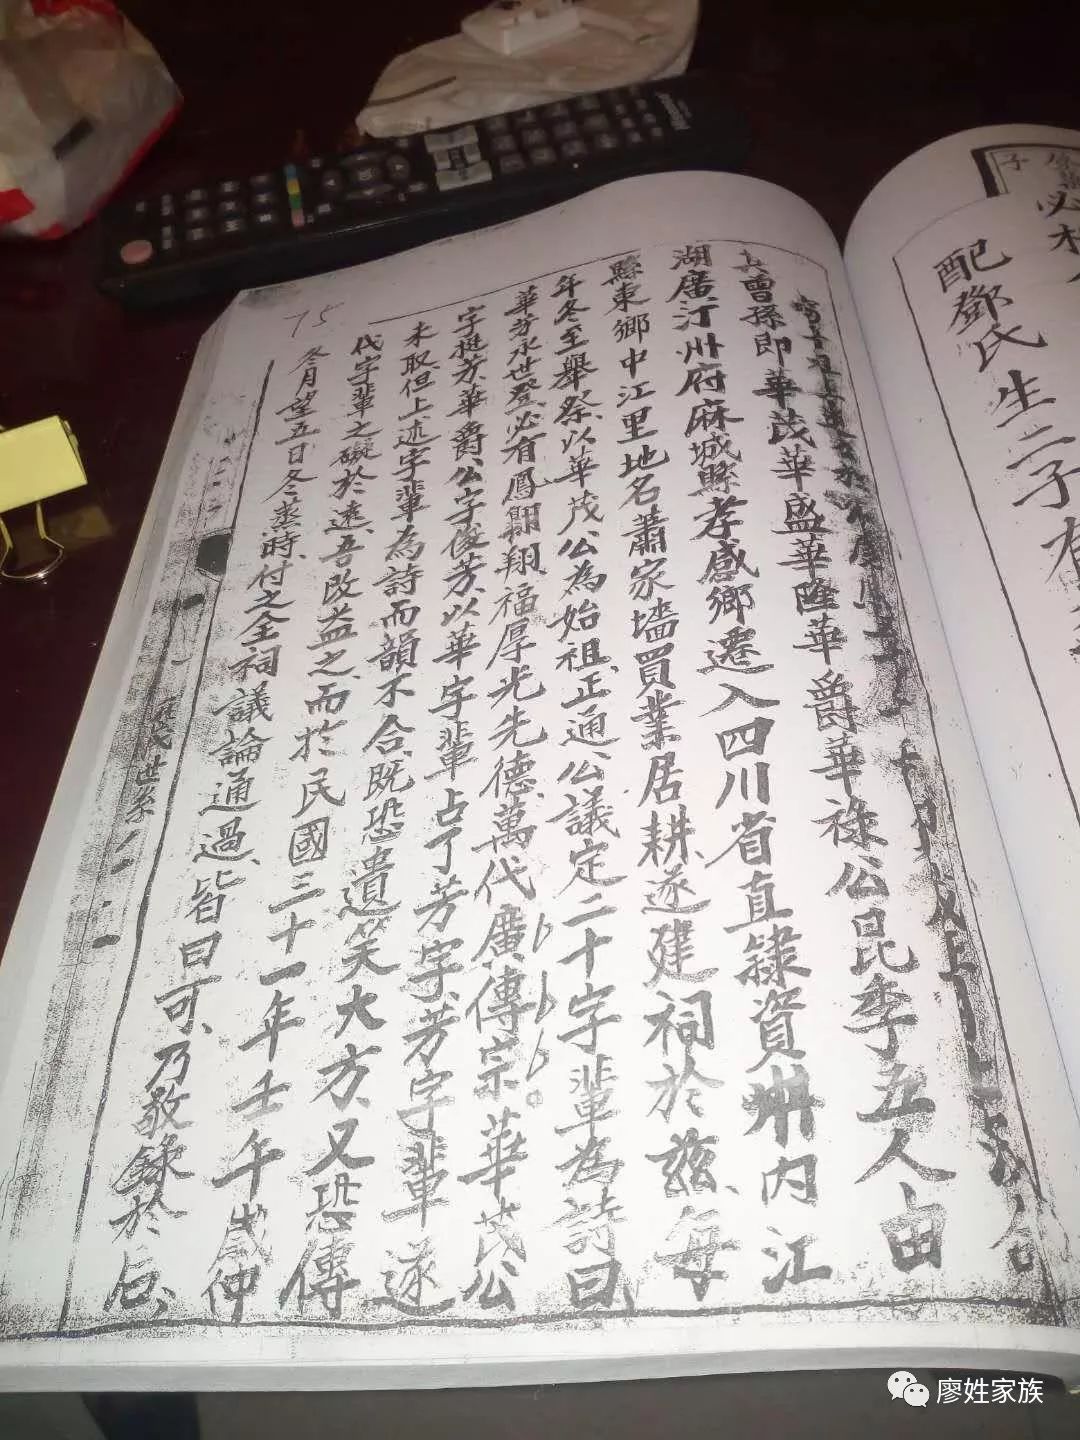 其曾孫即華茂華盛華隆華爵華祿公昆季五人由
湖廣汀州府麻城縣孝感鄉遷入四川省直隸資州內江
縣東鄉中江里地名蕭家墻買業居耕遂建祠於茲、每
年冬至舉祭以華茂公為始祖、正通公議定二十字輩為詩曰、
華芳永世登、必有鳳翶翔、福厚光先德、萬代廣傳宗、華茂公
字挺芳、華爵公字俊芳、以華字輩占了芳字、芳字輩遂
未取、但上述字輩為詩而韻不合、既恐遺笑大方、又恐傳
代字輩之礙於遠、吾改益之、而於民國三十一年壬午歲仲
冬月望五日冬蒸時、付之全祠議論通過、皆曰可、乃敬錄於后、
75
世系
配鄧氏生二子有
子
廖姓家族